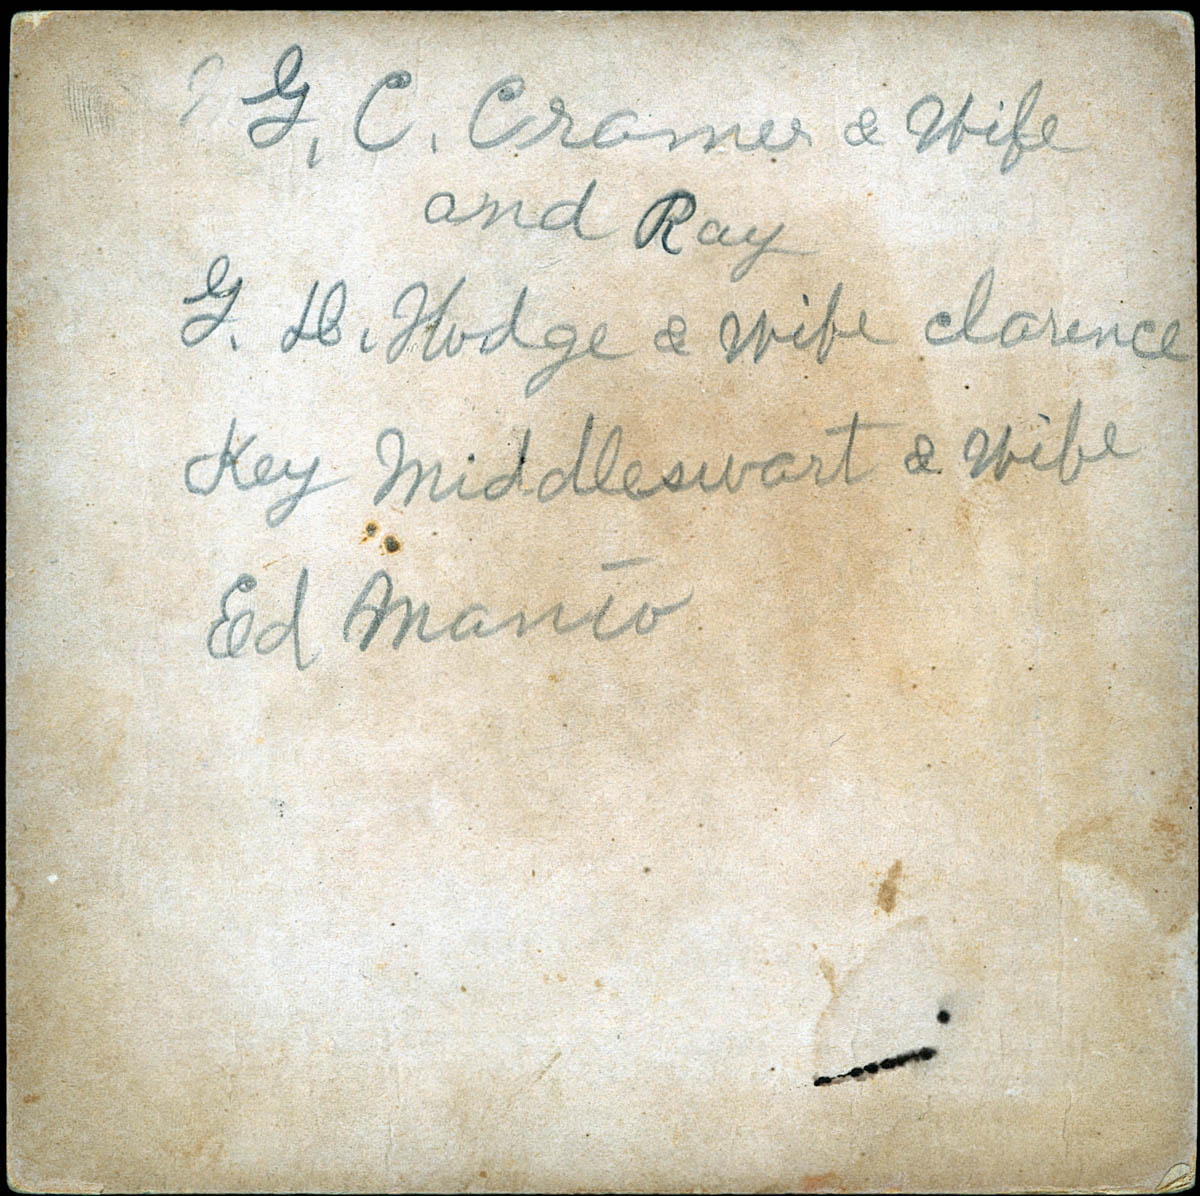 G. C. Cramer & Wife
and Ray
G. D. Hodge & Wife Clarence
Key Middleswart & Wife
Ed Manto